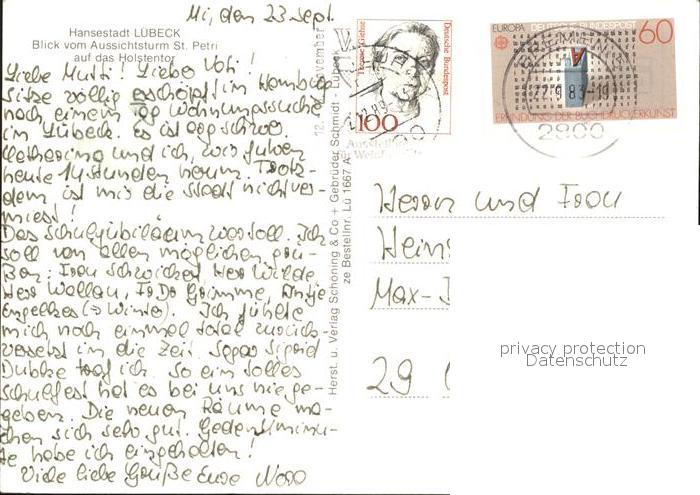 Hansestadt LÜBECK
Blick vom Aussichtsturm St. Petri
auf das Holstentor
Mi, den 23 Sept.
Liebe Mutti! Lieber Vati!
Sitze völlig erschöpft im Hamburg
nach einem Tag Wohnungssuche
in Lübeck. Es ist echt schwer.
Catherina und ich, wir fuhren
heute 14 Stunden herum. Trotz-
dem ist mir die Stadt nicht ver-
miest!
Das Schuljubiläum war toll. Ich
soll von allen möglichen grü-
ßen: Frau Schwichert Herr Wilde
Herr Wellan, Antje
Engelkes (→ Winter). Ich fühlte
mich noch einmal total zurück-
versetzt in die Zeit. Sogar Sigrid
traf ich. So ein tolles
Schulfest hat es bei uns nie ge-
geben. Die neuen Räume ma-
chen sich sehr gut. Gedenkminu-
te habe ich eingehalten!
Viele liebe Grüße Eure
Herst. u. Verlag Schöning & Co + Gebrüder Schmidt - Lübeck
ze Bestellnr. Lü 1667 A
12. November
Therese Giehse
Deutsche Bundespost
100
EUROPA DEUTSCHE BUNDESPOST
60
22.9.83-19
ERFINDUNG DER BUCHDRUCKERKUNST
2800
Herrn und Frau
Hein
Max-
29
privacy protection
Datenschutz